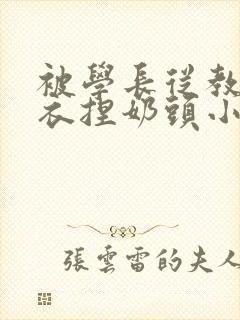 被學長從教
衣捏奶頭小
張雲雷的夫人